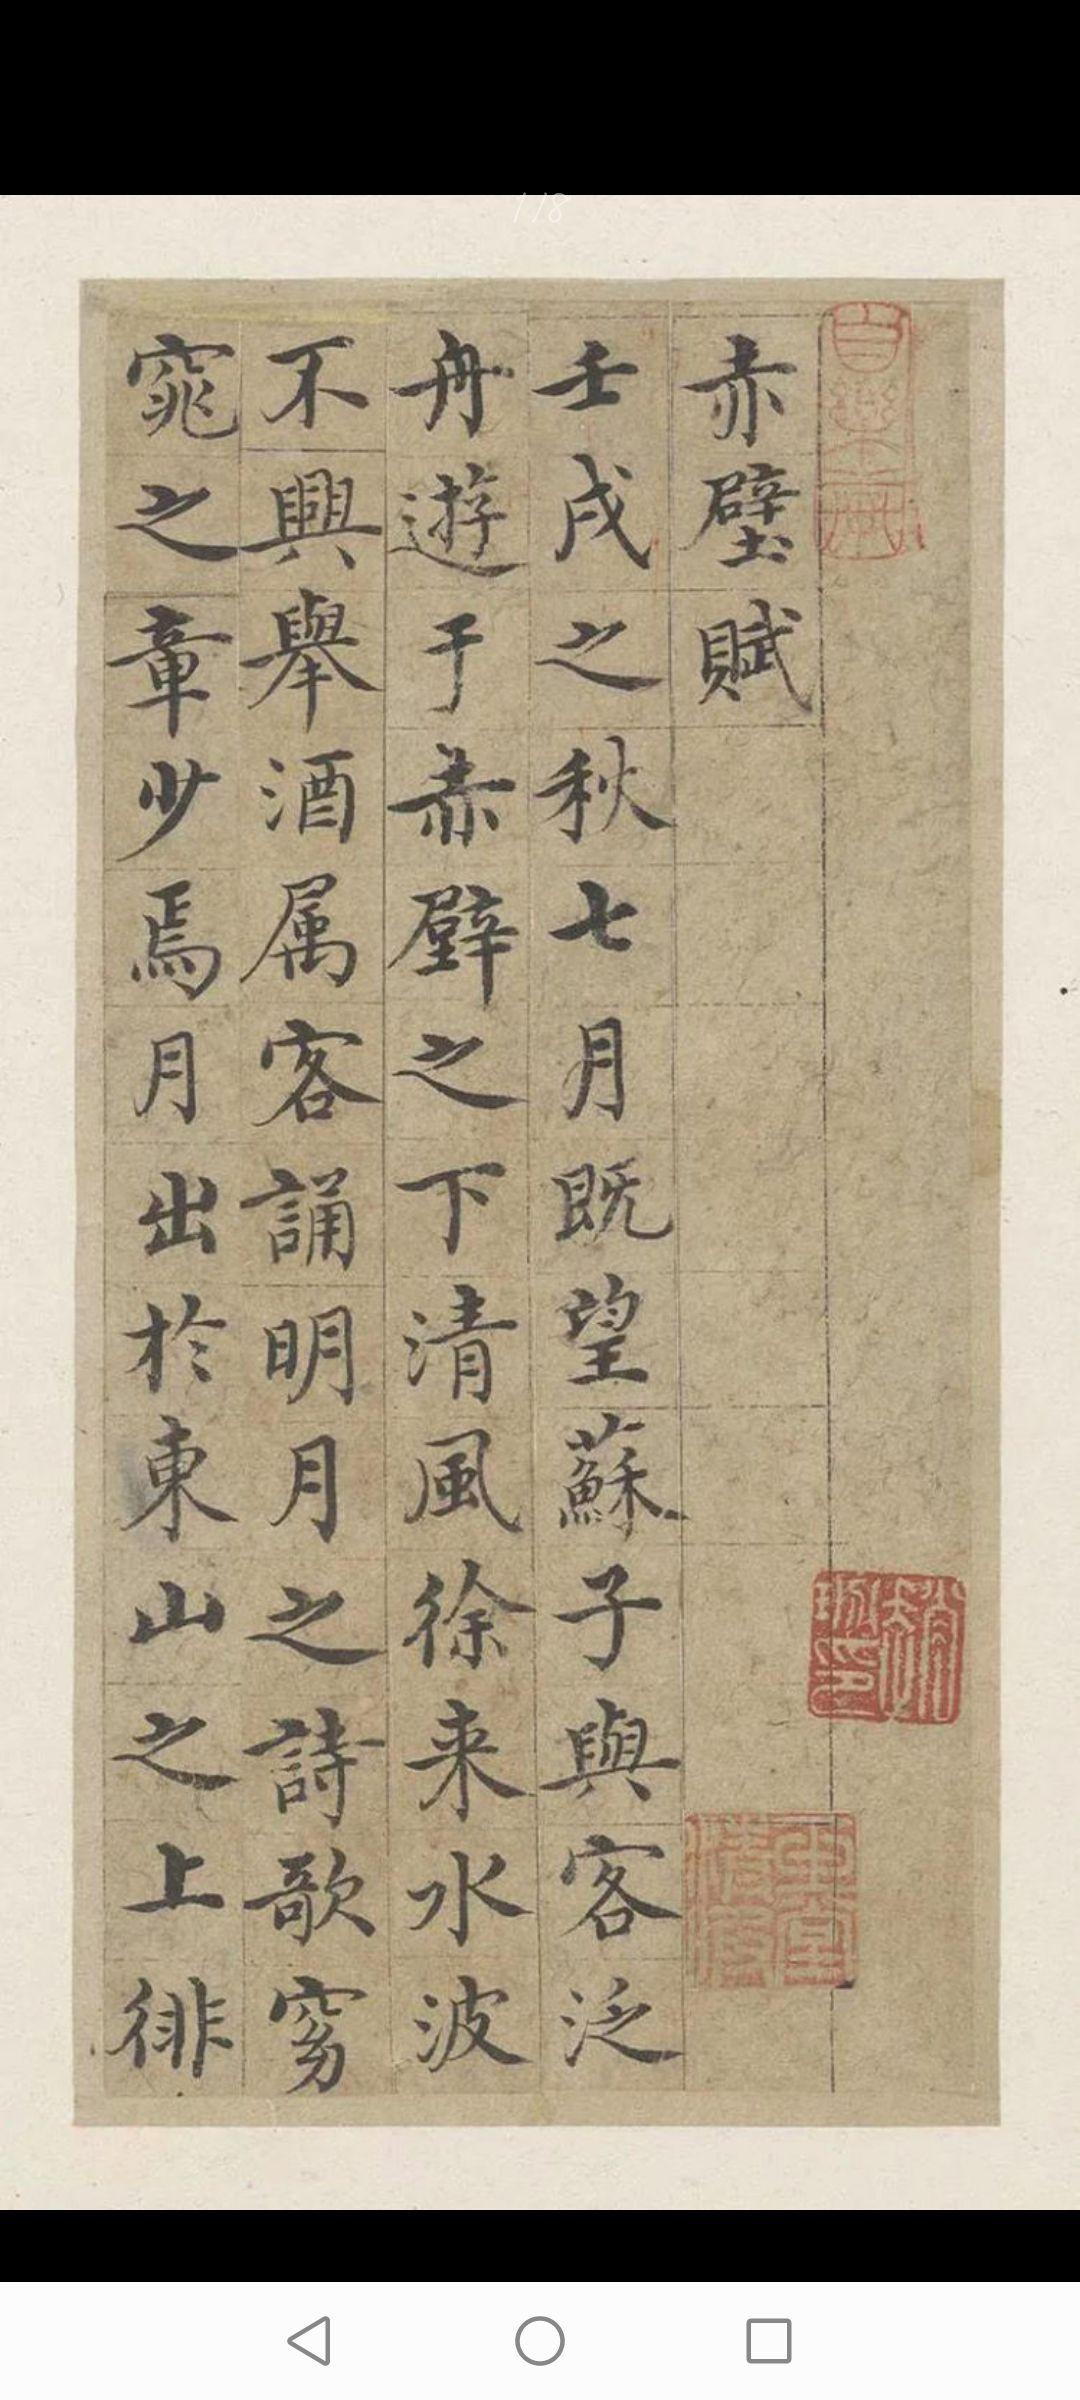 1/8
赤壁賦
壬戌之秋七月既望蘇子與客泛
舟遊于赤壁之下清風徐来水波
不興舉酒属客誦明月之詩歌窈
窕之章少焉月出於東山之上徘